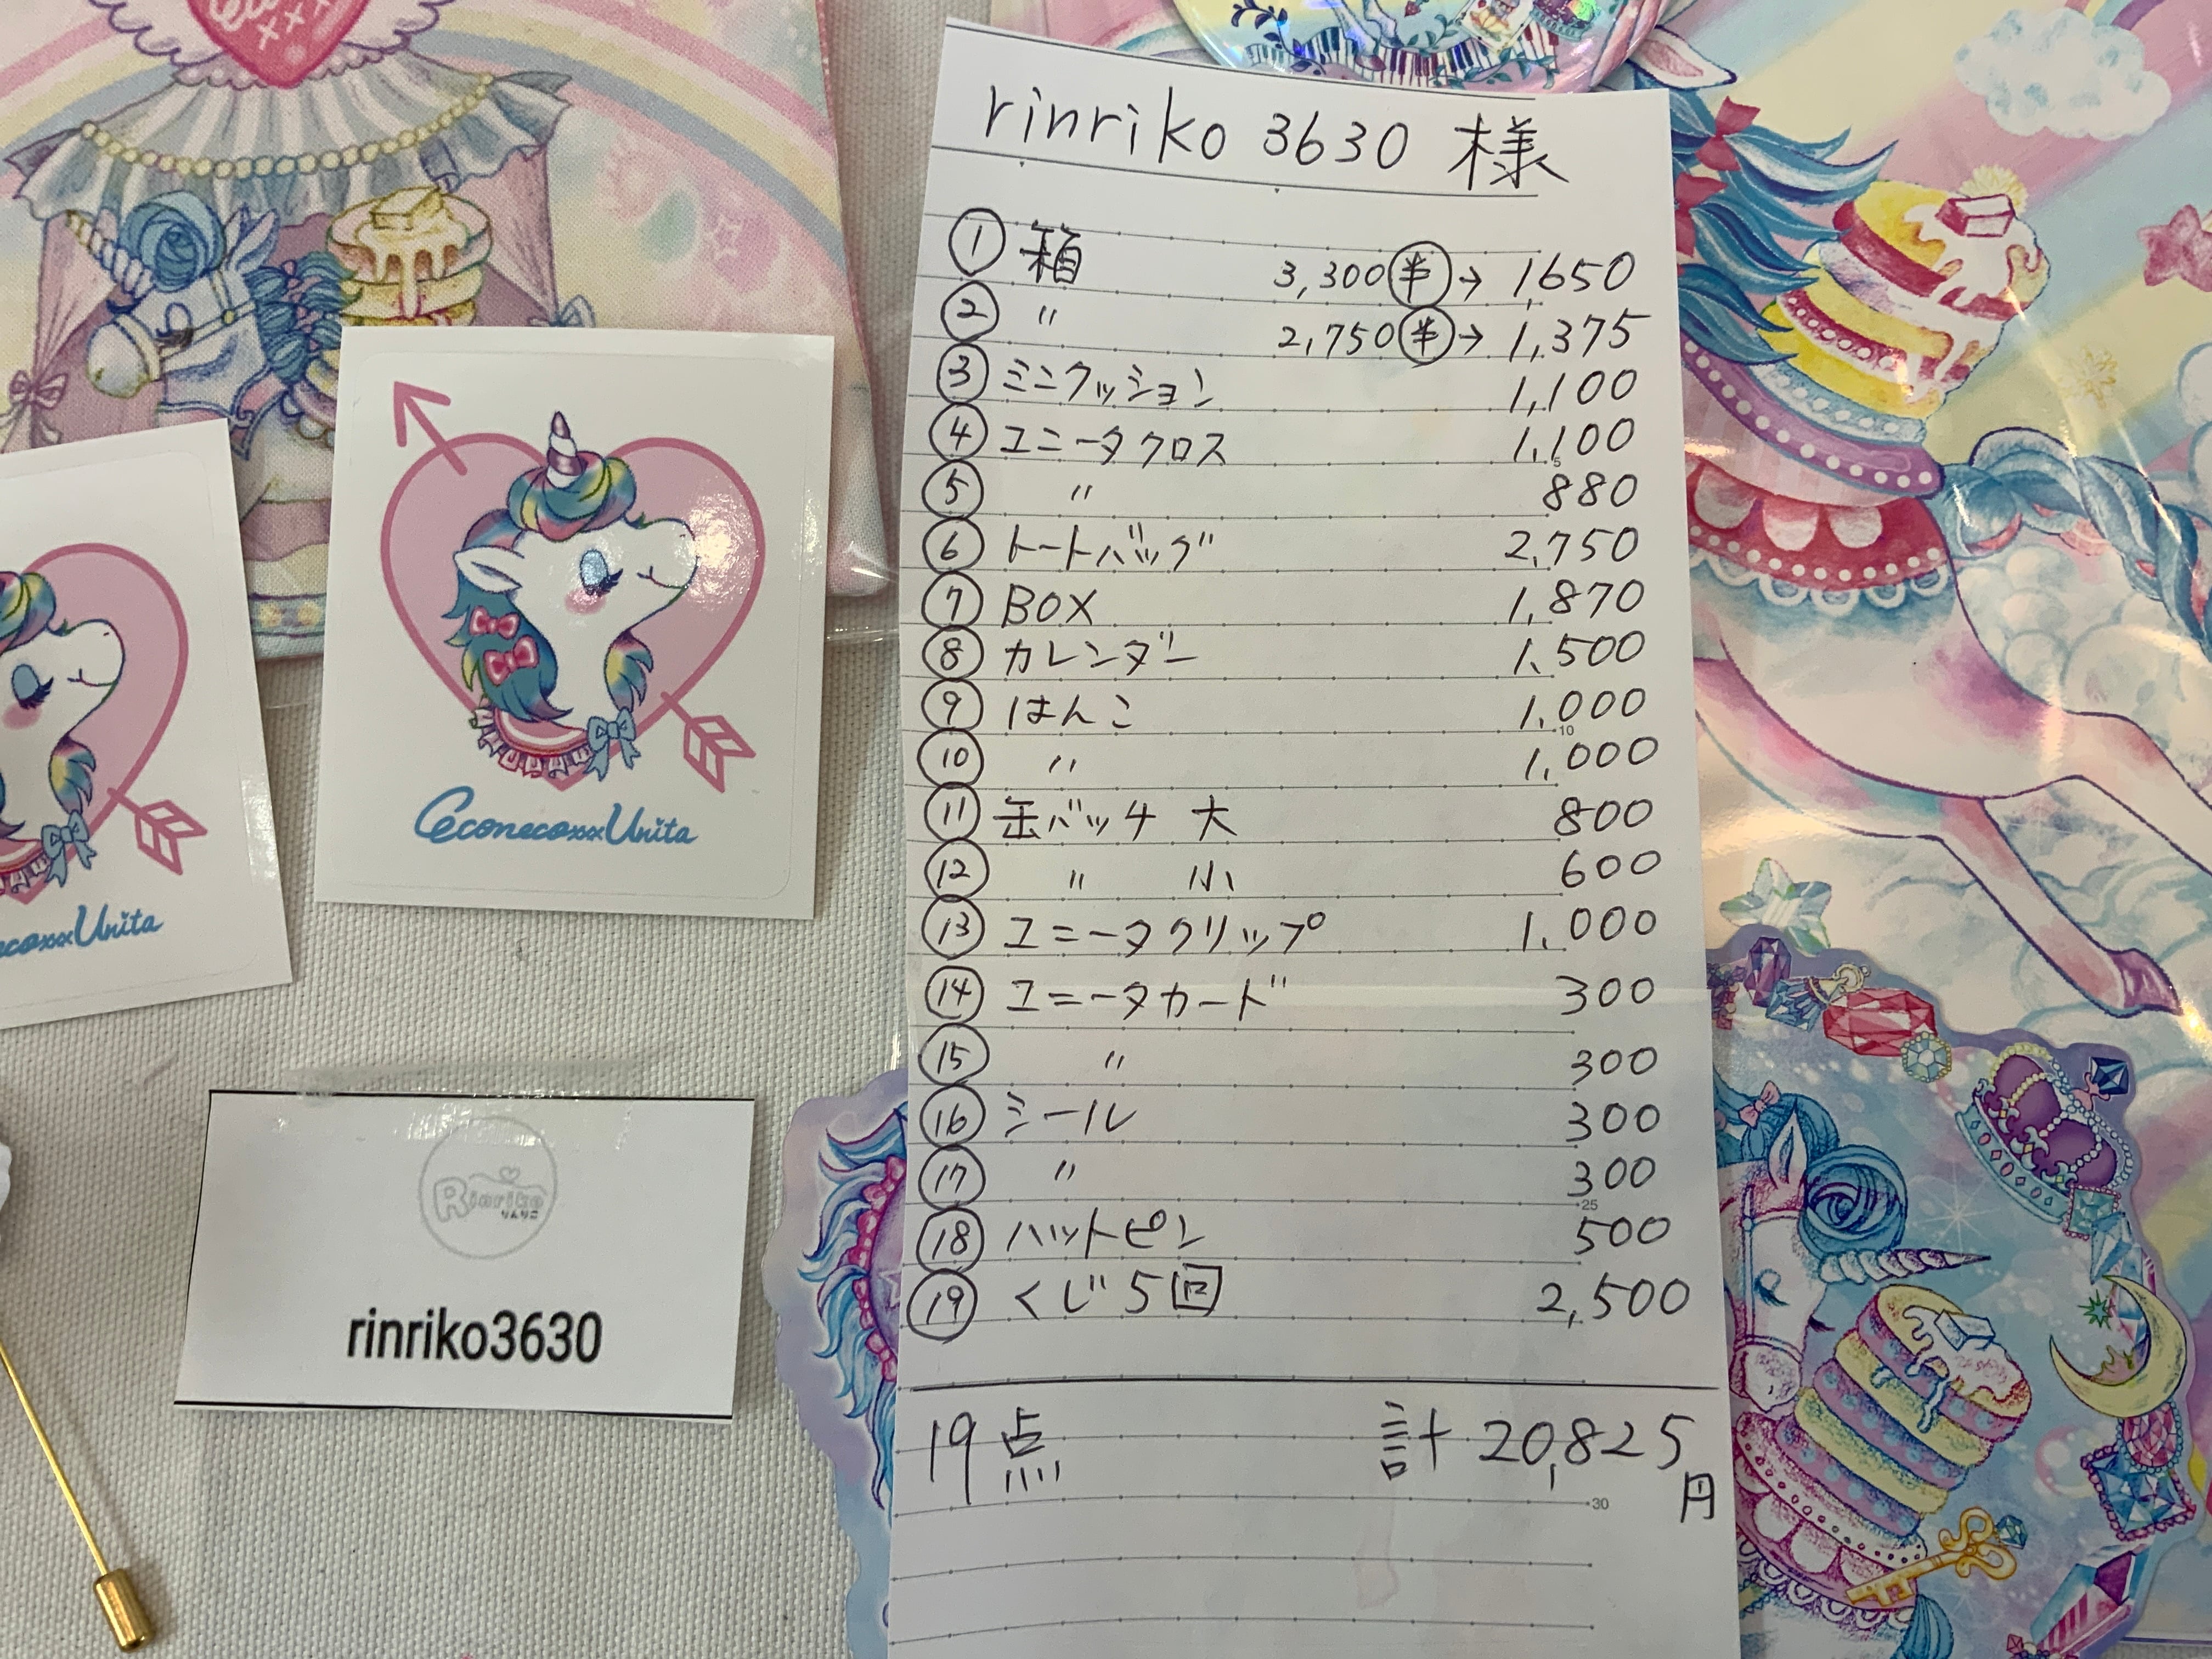 rinriko 3630 様
① 箱 3,300 半 → 1,650
② 〃 2,750 半 → 1,375
③ ミニクッション 1,100
④ ユニータクロス 1,100
⑤ 〃 880
⑥ トートバッグ 2,750
⑦ BOX 1,870
⑧ カレンダー 1,500
⑨ はんこ 1,000
⑩ 〃 1,000
⑪ 缶バッチ 大 800
⑫ 〃 小 600
⑬ ユニータクリップ 1,000
⑭ ユニータカード 300
⑮ 〃 300
⑯ シール 300
⑰ 〃 300
⑱ ハットピン 500
⑲ くじ 5回 2,500
19点 計 20,825円
5
10
25
30
CeconecoxxxUnita
ecoxxxUnita
Rinriko
りんりこ
rinriko3630